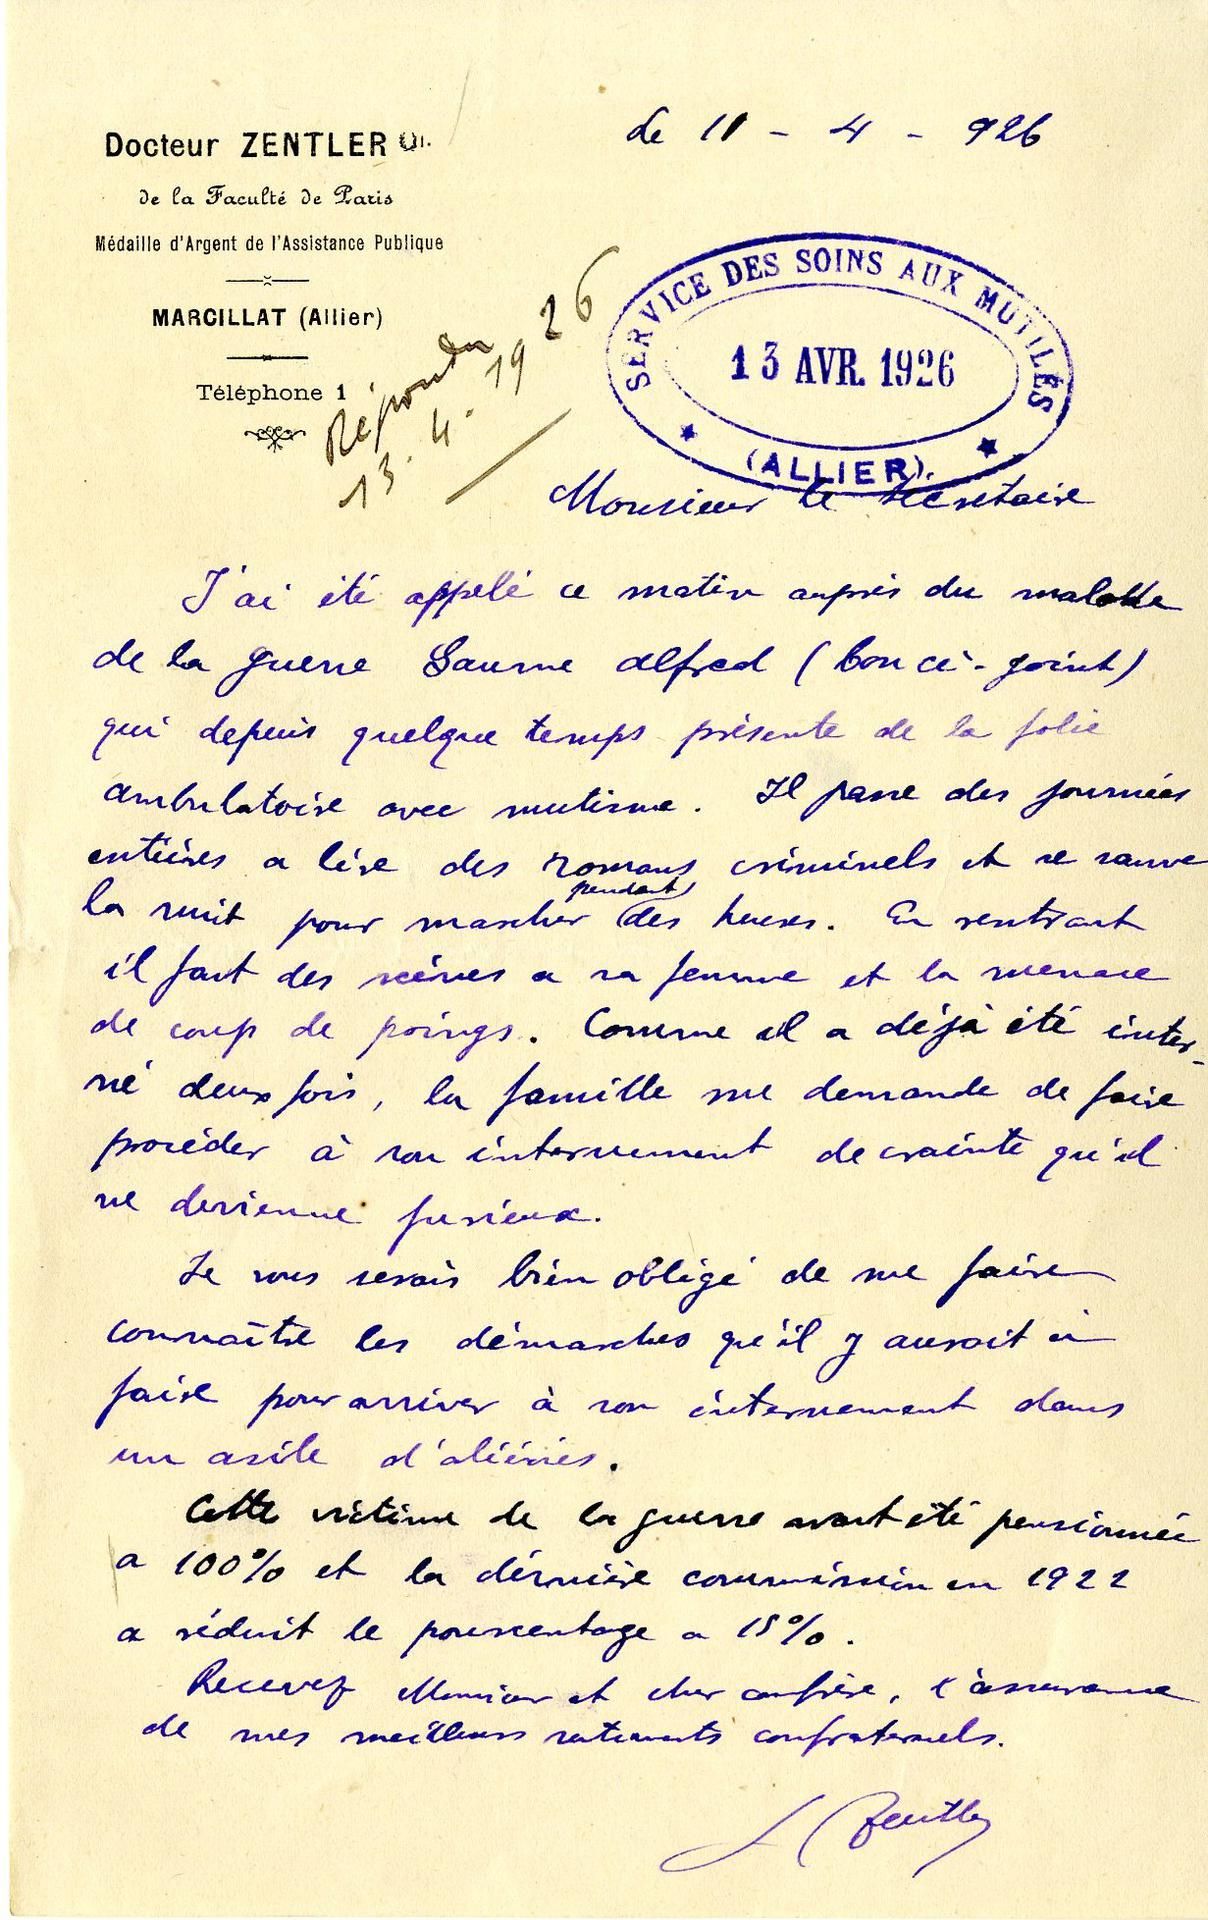 Docteur ZENTLER
de la Faculté de Paris
Médaille d'Argent de l'Assistance Publique
MARCILLAT (Allier)
Téléphone 1
Le 11 - 4 - 926
Répondu
13. 4. 1926
SERVICE DES SOINS AUX MUTILÉS
13 AVR. 1926
(ALLIER).
Monsieur le Secrétaire
J'ai été appelé ce matin auprès du malade
de la guerre Saume Alfred (bon ci-joint)
qui depuis quelque temps présente de la folie
ambulatoire avec mutisme. Il passe des journées
entières a lire des romans criminels et se sauve
la nuit pour marcher pendant des heures. En rentrant
il fait des scènes a sa femme et la menace
de coup de poings. Comme il a déjà été inter-
né deux fois, la famille me demande de faire
procéder à son internement de crainte qu'il
ne devienne furieux.
Je vous serais bien obligé de me faire
connaître les démarches qu'il y aurait à
faire pour arriver à son internement dans
un asile d'aliénés.
Cette victime de la guerre avait été pensionnée
a 100% et la dernière commission en 1922
a réduit le pourcentage a 15%.
Recevez Monsieur et cher confrère, l'assurance
de mes meilleurs sentiments confraternels.
Zentler